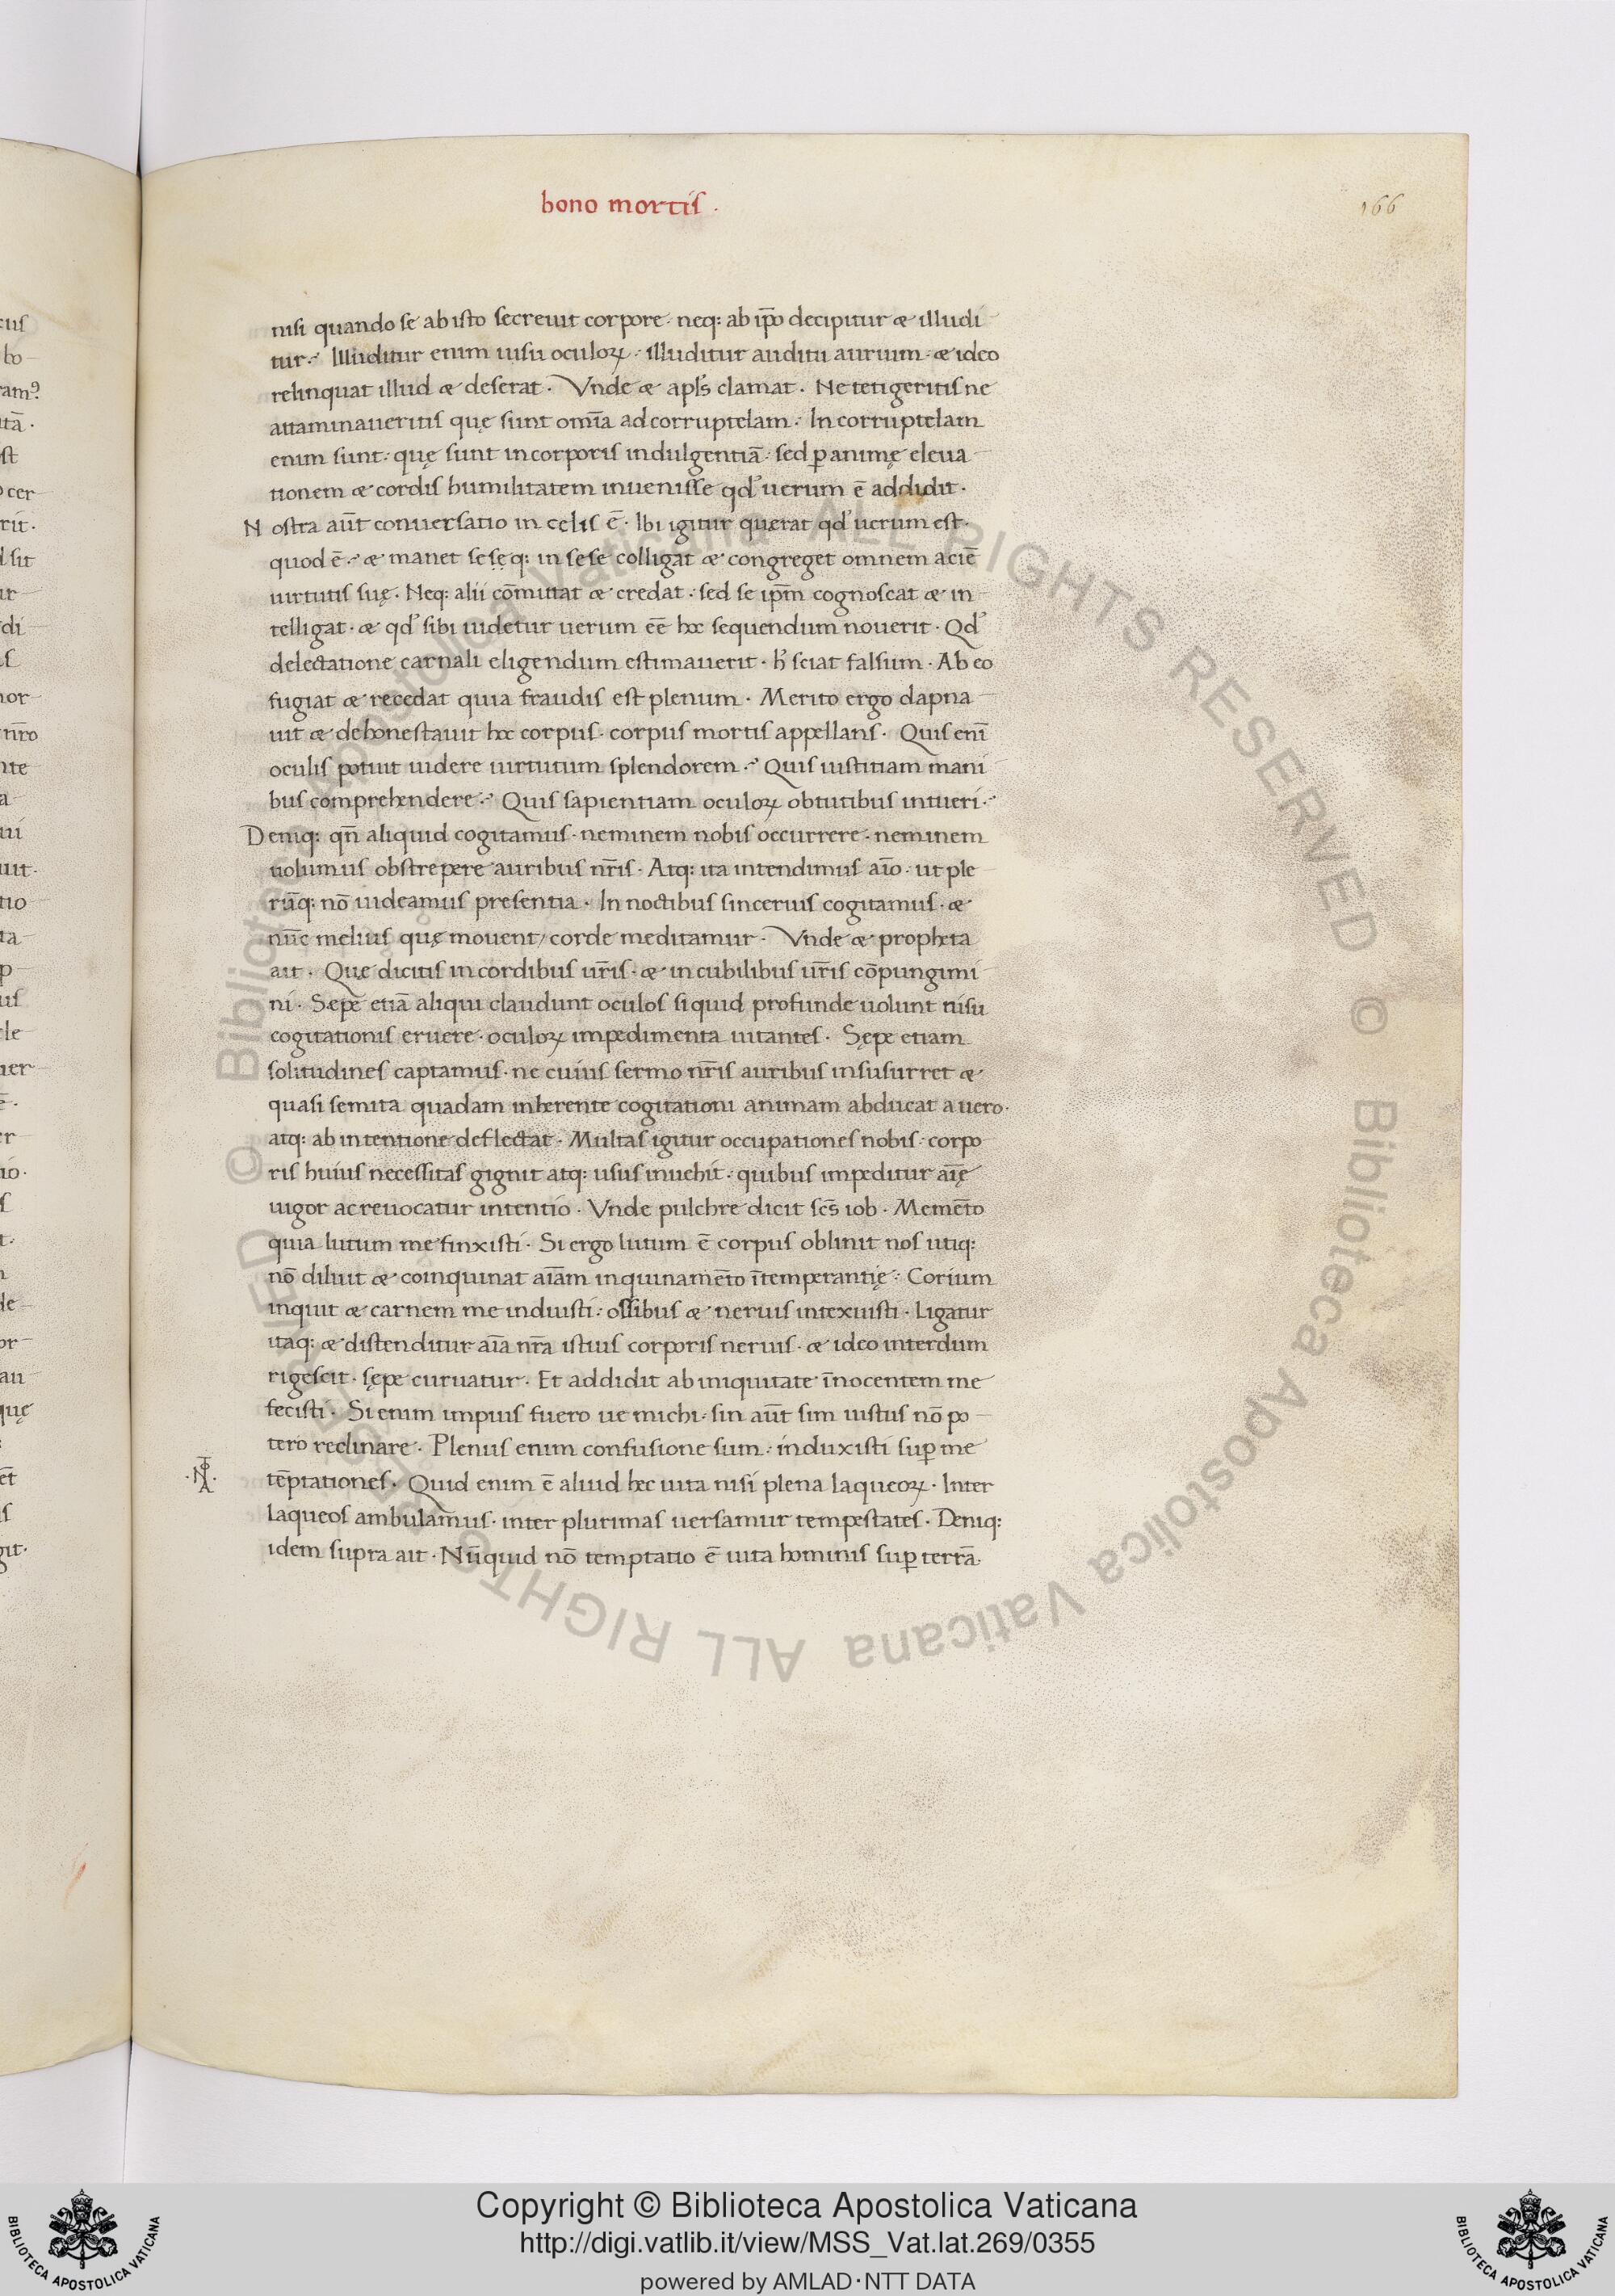 bono mortis .
166
nisi quando se ab isto secreuit corpore · neq: ab ip̄o decipitur & illudi
tur · Illuditur enim uisu oculoꝝ · illuditur auditu aurium · & ideo
relinquat illud & deserat · Vnde & apl's clamat · Ne tetigeritis ne
attaminaueritis quę sunt om̄ia ad corruptelam · In corruptelam
enim sunt · quę sunt in corporis indulgentiā · sed ꝑ animę eleua
tionem & cordis humilitatem inuenisse qd' uerum ē addidit ·
Nostra aūt conuersatio in celis ē · Ibi igitur quęrat qd' uerum est ·
quod ē · & manet sesęq: in sese colligat & congreget omnem aciē
uirtutis suę · Neq: alii cōmittat & credat · sed se ip̄m cognoscat & in
telligat · & qd' sibi uidetur uerum eē hoc sequendum nouerit · Qd'
delectatione carnali eligendum estimauerit · h' sciat falsum · Ab eo
fugiat & recedat quia fraudis est plenum · Merito ergo dapna
uit & dehonestauit hoc corpus · corpus mortis appellans · Quis enī
oculis potuit uidere uirtutum splendorem · Quis iustitiam mani
bus comprehendere · Quis sapientiam oculoꝝ obtutibus intueri ·
Deniq: qn̄ aliquid cogitamus · neminem nobis occurrere · neminem
uolumus obstrepere auribus nr̄is · Atq: ita intendimus aīo · ut ple
rūq: nō uideamus presentia · In noctibus sincerius cogitamus · &
nūc melius quę mouent / corde meditamur · Vnde & propheta
ait · Quę dicitis in cordibus ur̄is · & in cubilibus ur̄is cōpungimi
ni · Sępe etiā aliqui claudunt oculos siquid profunde uolunt nisu
cogitationis eruere · oculoꝝ impedimenta uitantes · Sępe etiam
solitudines captamus · ne cuius sermo nr̄is auribus insusurret &
quasi semita quadam inherente cogitationi animam abducat a uero ·
atq: ab intentione deflectat · Multas igitur occupationes nobis · corpo
ris huius necessitas gignit atq: usus inuehit · quibus impeditur aīę
uigor ac reuocatur intentio · Vnde pulchre dicit sc̄s iob · Memēto
quia lutum me finxisti · Si ergo lutum ē corpus oblinit nos utiq:
nō diluit & coinquinat aīam inquinamēto ītemperantię · Corium
inquit & carnem me induisti · ossibus & neruis intexuisti · Ligatur
itaq: & distenditur aīa nr̄a istius corporis neruis · & ideo interdum
rigescit · sępe curuatur · Et addidit ab iniquitate īnocentem me
fecisti · Si enim impius fuero ue michi · sin aūt sim iustus nō po
tero reclinare · Plenus enim confusione sum · induxisti suꝑ me
tēptationes · Quid enim ē aliud hec uita nisi plena laqueoꝝ · Inter
laqueos ambulamus · inter plurimas uersamur tempestates · Deniq:
idem supra ait · Nūquid nō temptatio ē uita hominis suꝑ terrā ·
© Biblioteca Apostolica Vaticana ALL RIGHTS RESERVED © Biblioteca Apostolica Vaticana ALL RIGHTS RESERVED
Copyright © Biblioteca Apostolica Vaticana
http://digi.vatlib.it/view/MSS_Vat.lat.269/0355
powered by AMLAD·NTT DATA
BIBLIOTECA APOSTOLICA VATICANA
BIBLIOTECA APOSTOLICA VATICANA